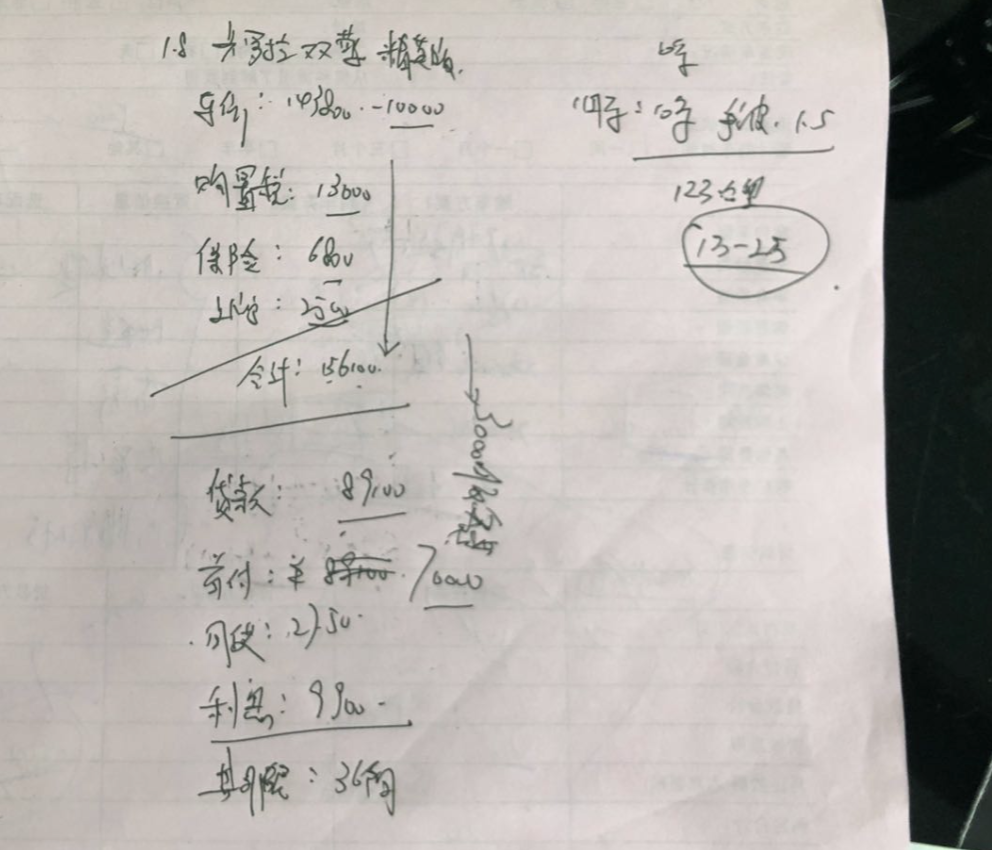 1.8 卡罗拉双擎精英版.
车价: 143800. -10000
购置税: 13600
保险: 6800
上牌: 2500
合计: 156100.
贷款: 89100
首付: ¥ 89100. 70000
月供: 2750.
利息: 9900.
期限: 36个月
→3000
1.5
123
13-25